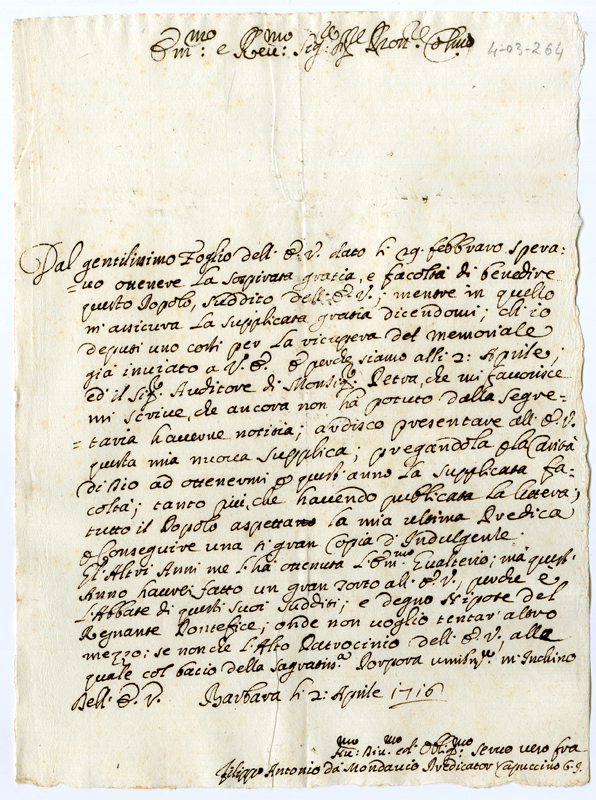 Em:mo e Reu:mo Sig:re Sig:re Pron:e Col:mo
4-03-264
Dal gentilissimo Foglio dell' E. V. dato li 29. febbraro spera:
=uo ottenere la sospirata gratia, e facoltà di benedire
questo Popolo, suddito dell' E. V.; mentre in quello
m'assicura la supplicata gratia dicendomi; ch'io
deputi uno costì per la ricupera del memoriale
già inviato a V. E. E perche siamo alli 2: Aprile;
ed il Sig:r Auditore di Monsig:r Petra, che mi fauorisce
mi scriue, che ancora non hà potuto dalla segre=
=taria hauerne notitia; ardisco presentare all' E. V.
questa mia nuova supplica; pregandola p la Carità
di Dio ad ottenermi p quest'anno la supplicata fa=
coltà; tanto più, che hauendo publicata la lettera;
tutto il Popolo aspettano la mia ultima Predica
p conseguire una sì gran Copia d'Indulgente.
Gl'Altri Anni me l'hà ottenuta l'Em:mo Gualterio; mà quest'
Anno haurei fatto un gran torto all' E. V., perche è
l'Abbate di questi suoi sudditi; e degno Nipote del
Regnante Pontefice; onde non voglio tentar altro
mezzo; se non che l'Alto Patrocinio dell' E. V., alla
quale col bacio della Sagratiss:a Porpora umilm:te m'Inchino
Dell' E. V. Barbara li 2: Aprile 1716
Hu:mo Diu:mo ed Obli:mo seruo uero fra
Filippo Antonio da Mondauio Predicator Cappuccino